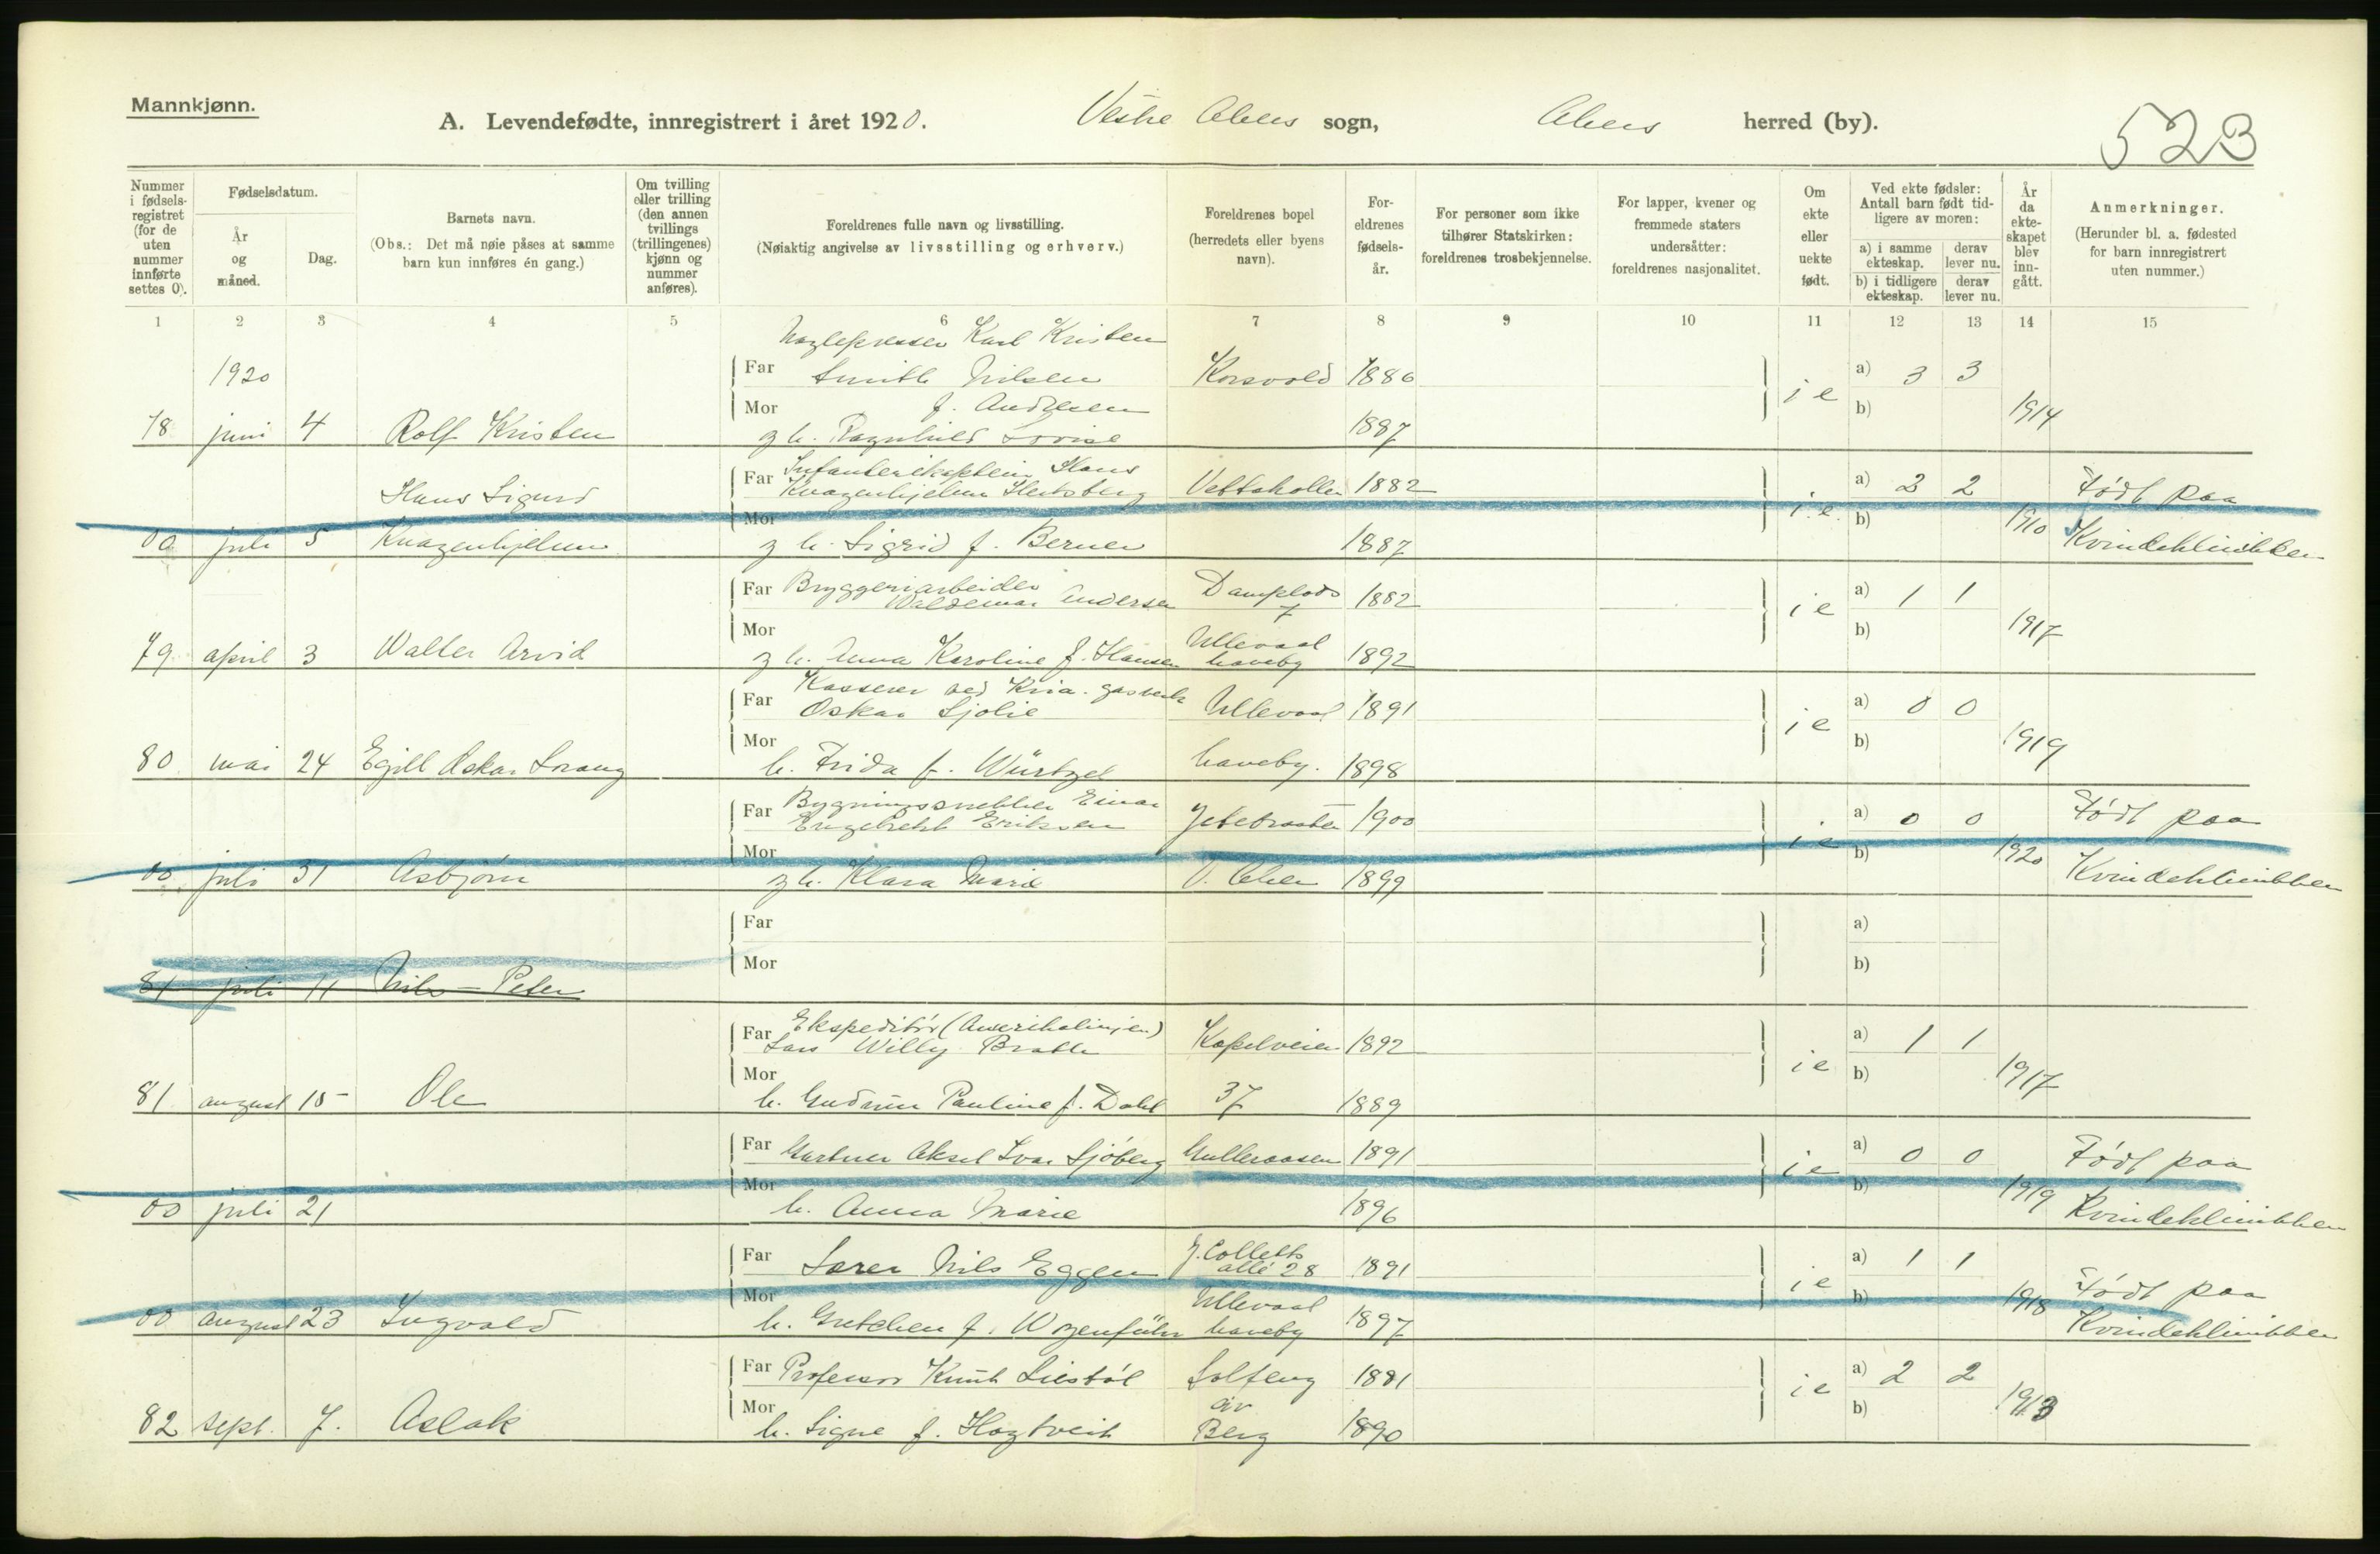 Mannkjønn.
A. Levendefødte, innregistrert i året 1920. Vestre Akers sogn, Akers herred (by).
523
Nummer i fødsels-registret (for de uten nummer innførte settes 0).
Fødselsdatum.
År og måned.
Dag.
Barnets navn.
(Obs.: Det må nøie påses at samme barn kun innføres én gang.)
Om tvilling eller trilling (den annen tvillings (trillingenes) kjønn og nummer anføres).
Foreldrenes fulle navn og livsstilling.
(Nøiaktig angivelse av livsstilling og erhverv.)
Foreldrenes bopel (herredets eller byens navn).
For-eldrenes fødsels-år.
For personer som ikke tilhører Statskirken: foreldrenes trosbekjennelse.
For lapper, kvener og fremmede staters undersåtter: foreldrenes nasjonalitet.
Om ekte eller uekte født.
Ved ekte fødsler: Antall barn født tid-ligere av moren:
a) i samme ekteskap.
derav lever nu.
b) i tidligere ekteskap.
derav lever nu.
År da ekte-skapet blev inn-gått.
Anmerkninger.
(Herunder bl. a. fødested for barn innregistrert uten nummer.)
1 2 3 4 5 6 7 8 9 10 11 12 13 14 15
Karl Kristen
1920 Far Smith Nilsen Korsvold 1886 i e a) 3 3
Mor f. Andresen b) 1914
78 juni 4 Rolf Kristen g h. Ragnhild Lovise 1887
Far Infanterikaptein Hans
Hans Sigurd Knagenhjelm Hertzberg Vettakollen 1882 i. e. a) 2 2 Født paa
Mor b) 1910
00 juli 5 Knagenhjelm g h. Sigrid f. Berner 1887 Kvindeklinikken
Far Bryggeriarbeider Damplads
Waldemar Andersen 7 1882 i e a) 1 1
Mor Ullevaal b) 1917
79 april 3 Walter Arvid g h. Anna Karoline f. Hansen haveby 1892
Kasserer ved Kria. gasverk
Far Oskar Sjolie Ullevaal 1891 i e a) 0 0
Mor b) 1919
80 mai 24 Egill Oskar Lorang h. Frida f. Würtzel haveby. 1898
Far Bygningssnekker Einar
Engebrekt Eriksen Jetebraaten 1900 i e a) 0 0 Født paa
Mor b) 1920
00 juli 31 Asbjørn g h. Klara Marie V. Aker 1899 Kvindeklinikken
Far a)
Mor b)
81 juli 11 Nils-Peter
Far Ekspeditør (Amerikalinjen)
Lars Willy Kapelveien 1892 i e a) 1 1
Mor b) 1917
81 august 15 Ole h. Gudrun Pauline f. Dahl 37 1889
Far Gartner Aksel Ivar Sjöberg Gulleraasen 1891 i e a) 0 0 Født paa
Mor b) 1919
00 juli 21 h. Anna Marie 1896 Kvindeklinikken
Far Lærer Nils Eggen J. Colletts
allé 28 1891 i e a) 1 1
Mor Ullevaal b) 1918 Født paa
00 august 23 Ingvald h. Gretchen f. Wogenführ haveby 1897 Kvindeklinikken
Far Professor Knut Liestöl Solfeng 1881 i e a) 2 2
Mor b) 1913
82 sept. 7. Aslak h. Signe f. Høgtveit Berg 1890